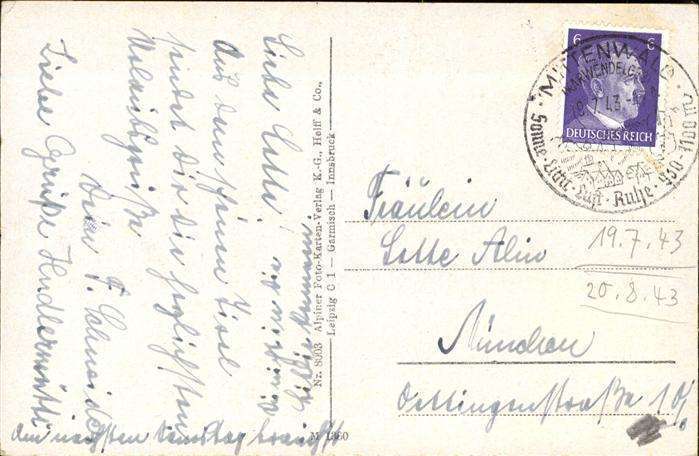 Liebe Lotte!
Aus dem schönen Tirol
sendet dir die herzlichsten
Urlaubsgrüße
Dein F. Schneider
Liebe Grüße
am nächsten Samstag brauchst
Nr. 8003 Alpiner Foto-Karten-Verlag K.-G., Helff & Co.,
Leipzig C 1 — Garmisch — Innsbruck
M 1360
6 6
DEUTSCHES REICH
MITTENWALD
KARWENDELGEB
7 43
920-1100 M
Sonne · Licht · Luft · Ruhe
Fräulein
Lotte
19.7.43
20.8.43
München
Oettingenstraße 10/